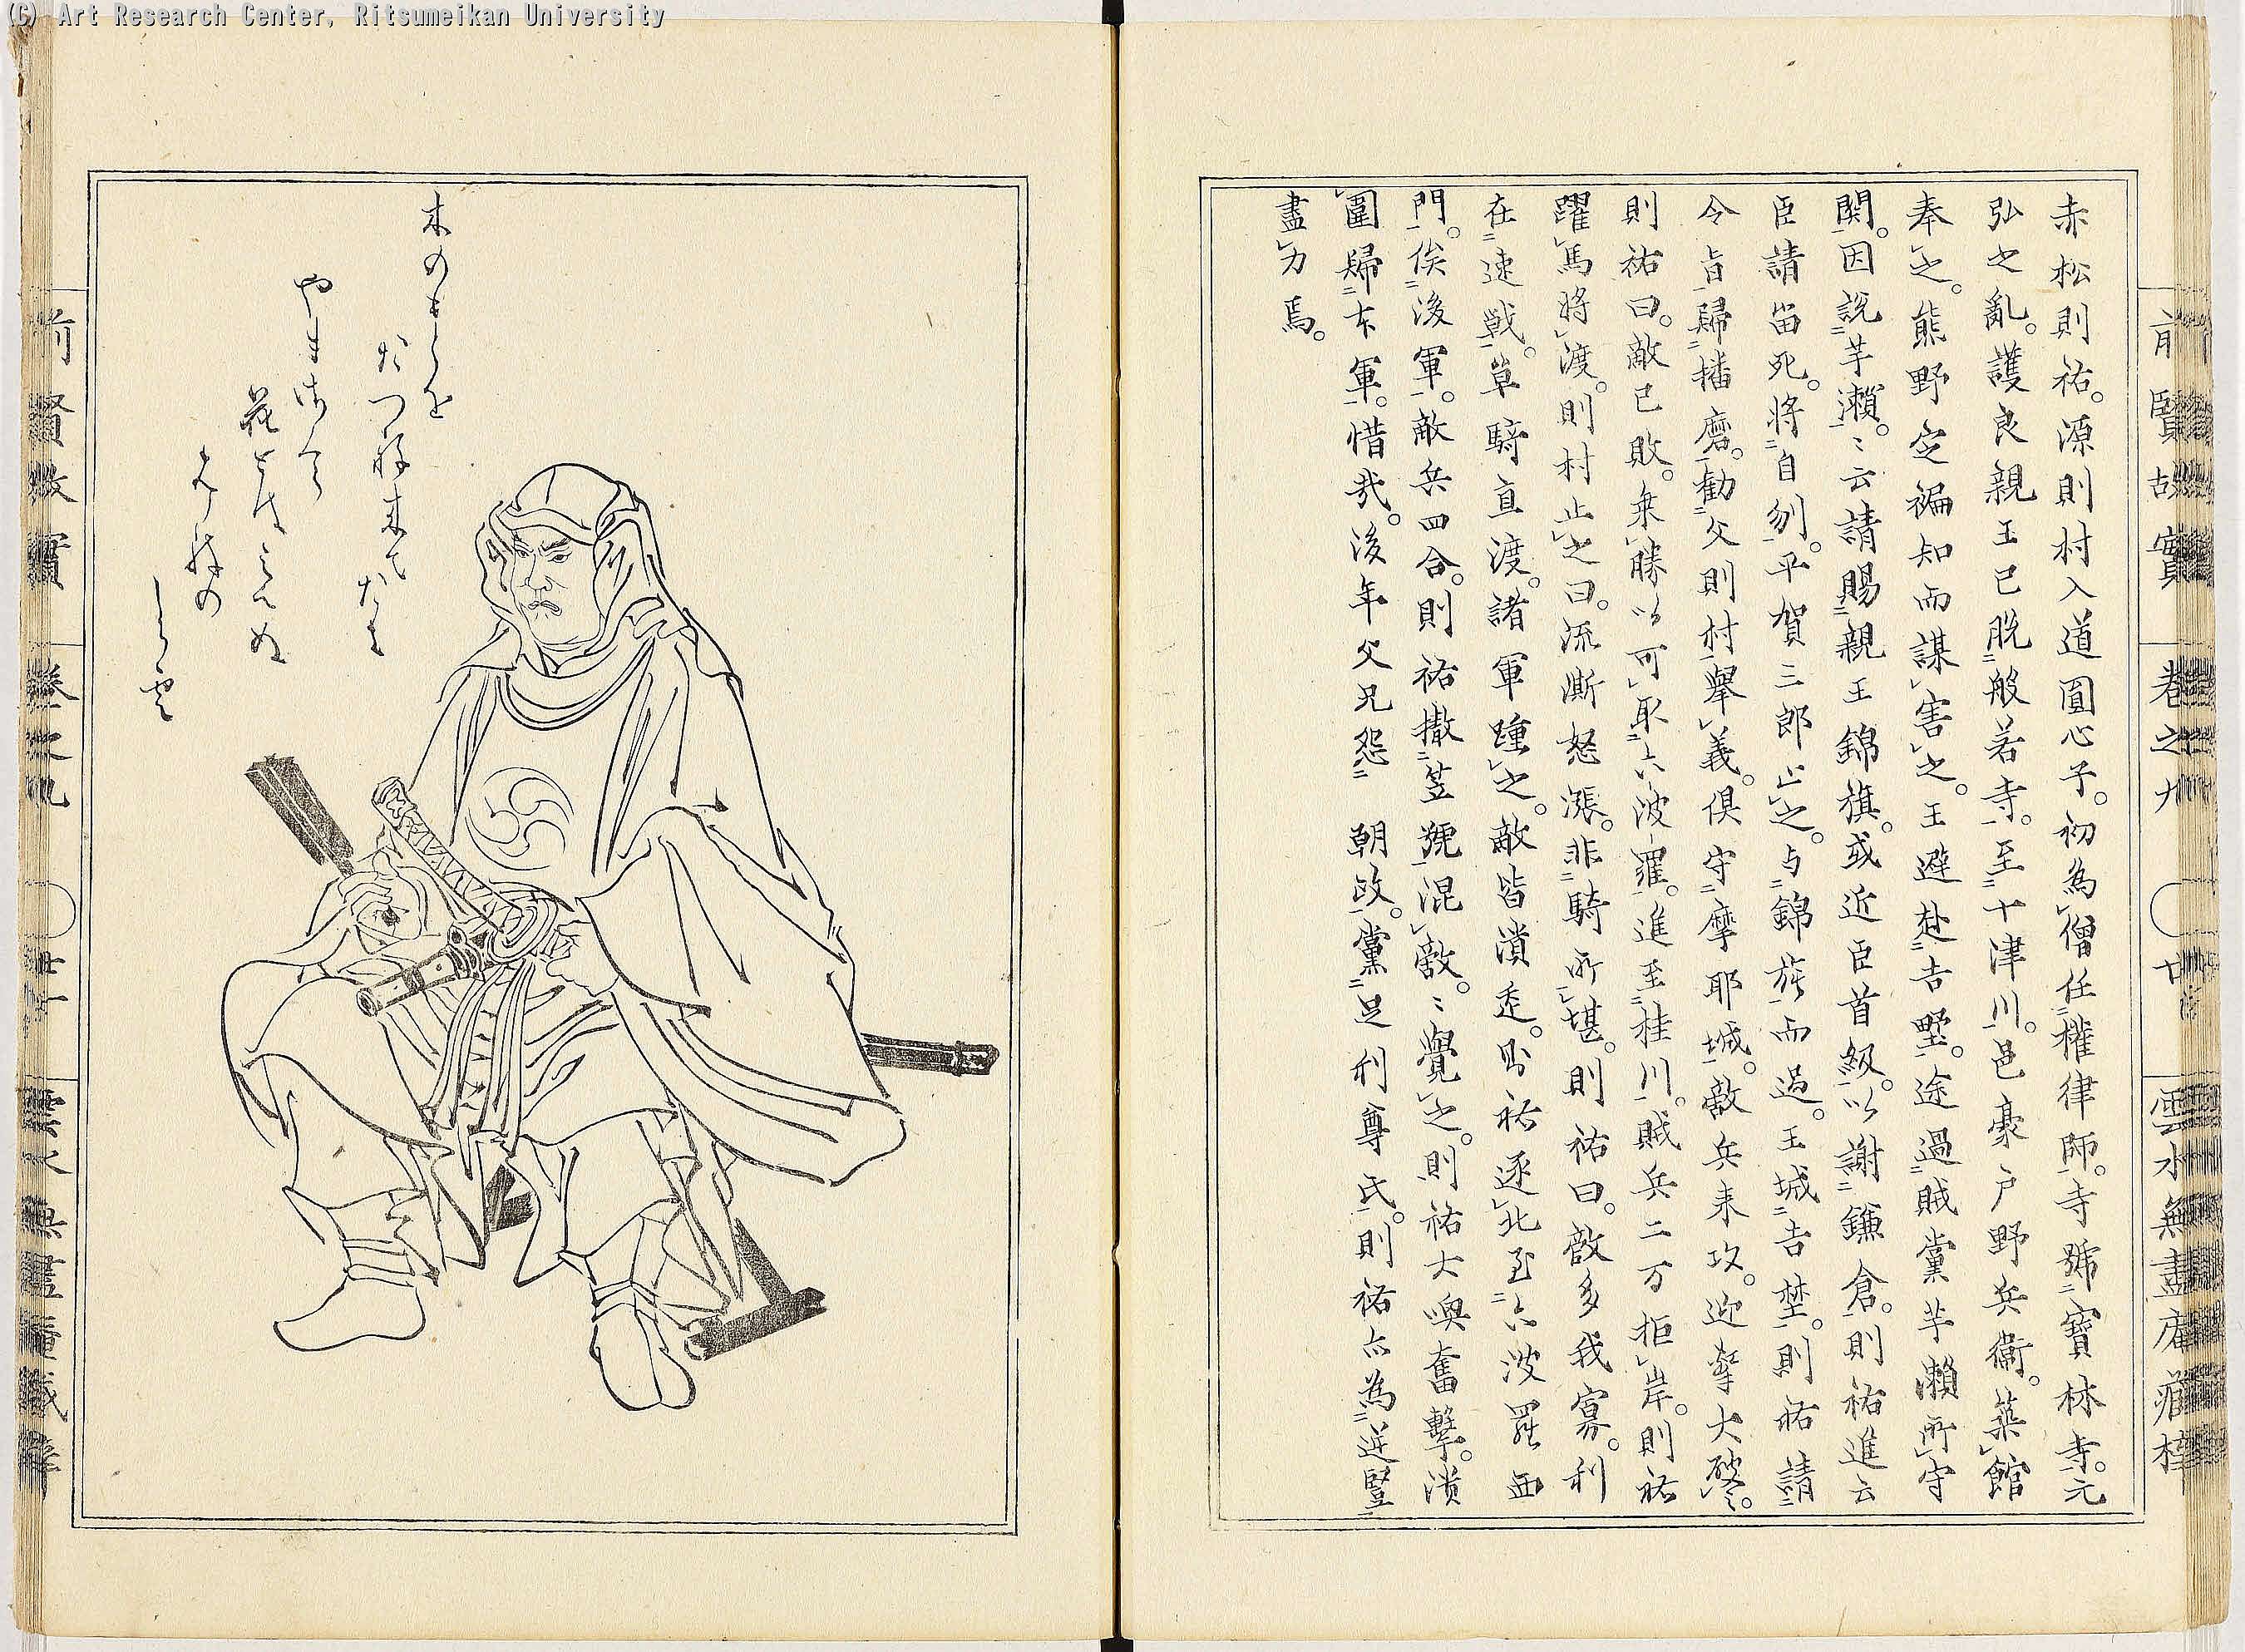 (C) Art Research Center, Ritsumeikan University
前賢故實 卷之九 〇 廿 雲水無盡庵藏梓
赤松則祐。源則村入道圓心子。初為僧任權律師。寺號寶林寺。元
弘之亂。護良親王已脱般若寺。至十津川。邑豪戸野兵衞。築館
奉之。熊野定褊知而謀害之。王避赴吉野。途過賊黨芋瀬所守
関。因説芋瀬。〻云請賜親王錦旗。或近臣首級。以謝鎌倉。則祐進云
臣請留死。將自刎。平賀三郎止之。与錦旗而過。王城吉埜。則祐請
令旨歸播磨。勸父則村舉義。倶守摩耶城。敵兵来攻。迎撃大破之。
則祐曰。敵已敗。乗勝以可取六波羅。進至桂川。賊兵二万拒岸。則祐
躍馬將渡。則村止之曰。流澌怒漲。非騎所堪。則祐曰。敵多我寡。利
在速戦。単騎直渡。諸軍踵之。敵皆潰走。則祐逐北至六波羅西
門。俟後軍。敵兵四合。則祐撤笠號混敵。〻覺之。則祐大喚奮擊。潰
圍歸本軍。惜哉。後年父兄怨 朝政。黨足利尊氏。則祐亦為逆豎
盡力焉。
木のもとを
たつね来て
たに
やまさくら
花とは見えぬ
みねの
しら雲
前賢故實 卷之九 〇 廿一 雲水無盡庵藏梓